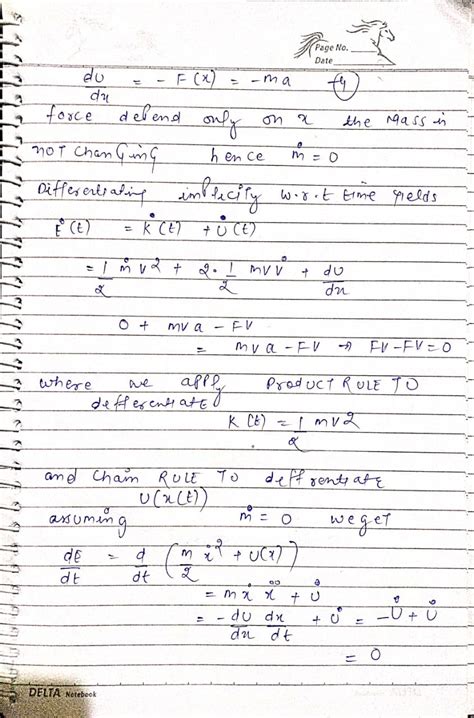 Page No.
Date
dU/dx = - F(x) = - ma → (4)
force depend only on x the Mass is
not changing hence ṁ = 0
Differentiating implicity w.r.t time yields
Ė(t) = K̇(t) + U̇(t)
= 1/2 ṁ v2 + 2. 1/2 m v v̇ + dU/dx
0 + mva - FV
= mva - FV → FV - FV = 0
where we apply PRODUCT RULE TO
defferentiate
K(t) = 1/2 mv2
and Chain RULE TO deffrentiate
U(x(t))
assuming ṁ = 0 we get
dE/dt = d/dt (m/2 ẋ2 + U(x))
= m ẋ ẍ + U̇
= - dU/dx dx/dt + U̇ = - U̇ + U̇
= 0
DELTA Notebook